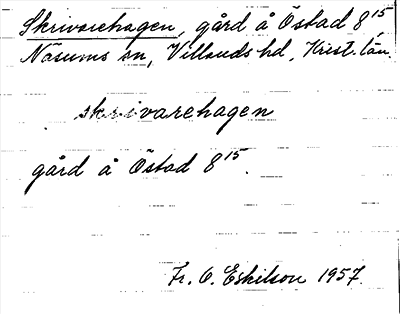 Skrivarehagen, gård å Östad 8¹⁵
Näsums sn, Villands hd, Krist. län.
skrivarehagen
gård å Östad 8¹⁵.
Fr. O. Eskilson 1957.